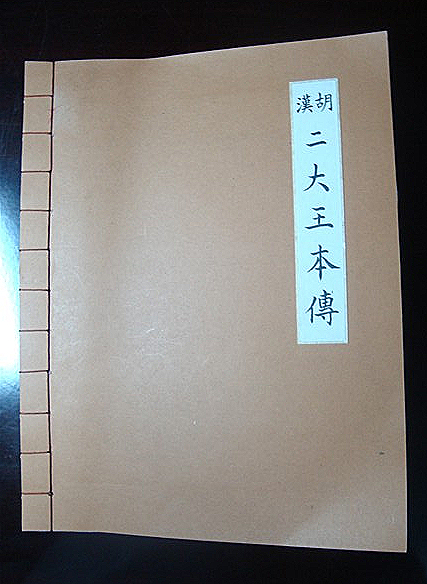 胡漢二大王本傳